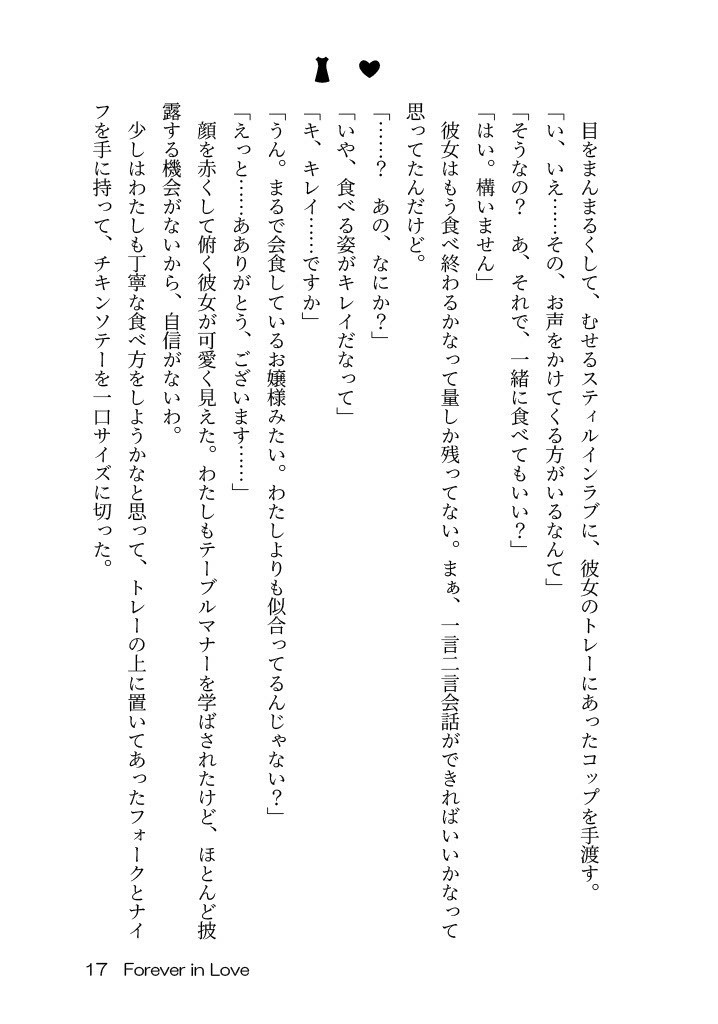 目をまんまるくして、むせるスティルインラブに、彼女のトレーにあったコップを手渡す。
「い、いえ……その、お声をかけてくる方がいるなんて」
「そうなの？　あ、それで、一緒に食べてもいい？」
「はい。構いません」
　彼女はもう食べ終わるかなって量しか残ってない。まぁ、一言二言会話ができればいいかなって
思ってたんだけど。
「……？　あの、なにか？」
「いや、食べる姿がキレイだなって」
「キ、キレイ……ですか」
「うん。まるで会食しているお嬢様みたい。わたしよりも似合ってるんじゃない？」
「えっと……あありがとう、ございます……」
　顔を赤くして俯く彼女が可愛く見えた。わたしもテーブルマナーを学ばされたけど、ほとんど披
露する機会がないから、自信がないわ。
　少しはわたしも丁寧な食べ方をしようかなと思って、トレーの上に置いてあったフォークとナイ
フを手に持って、チキンソテーを一口サイズに切った。
17　Forever in Love